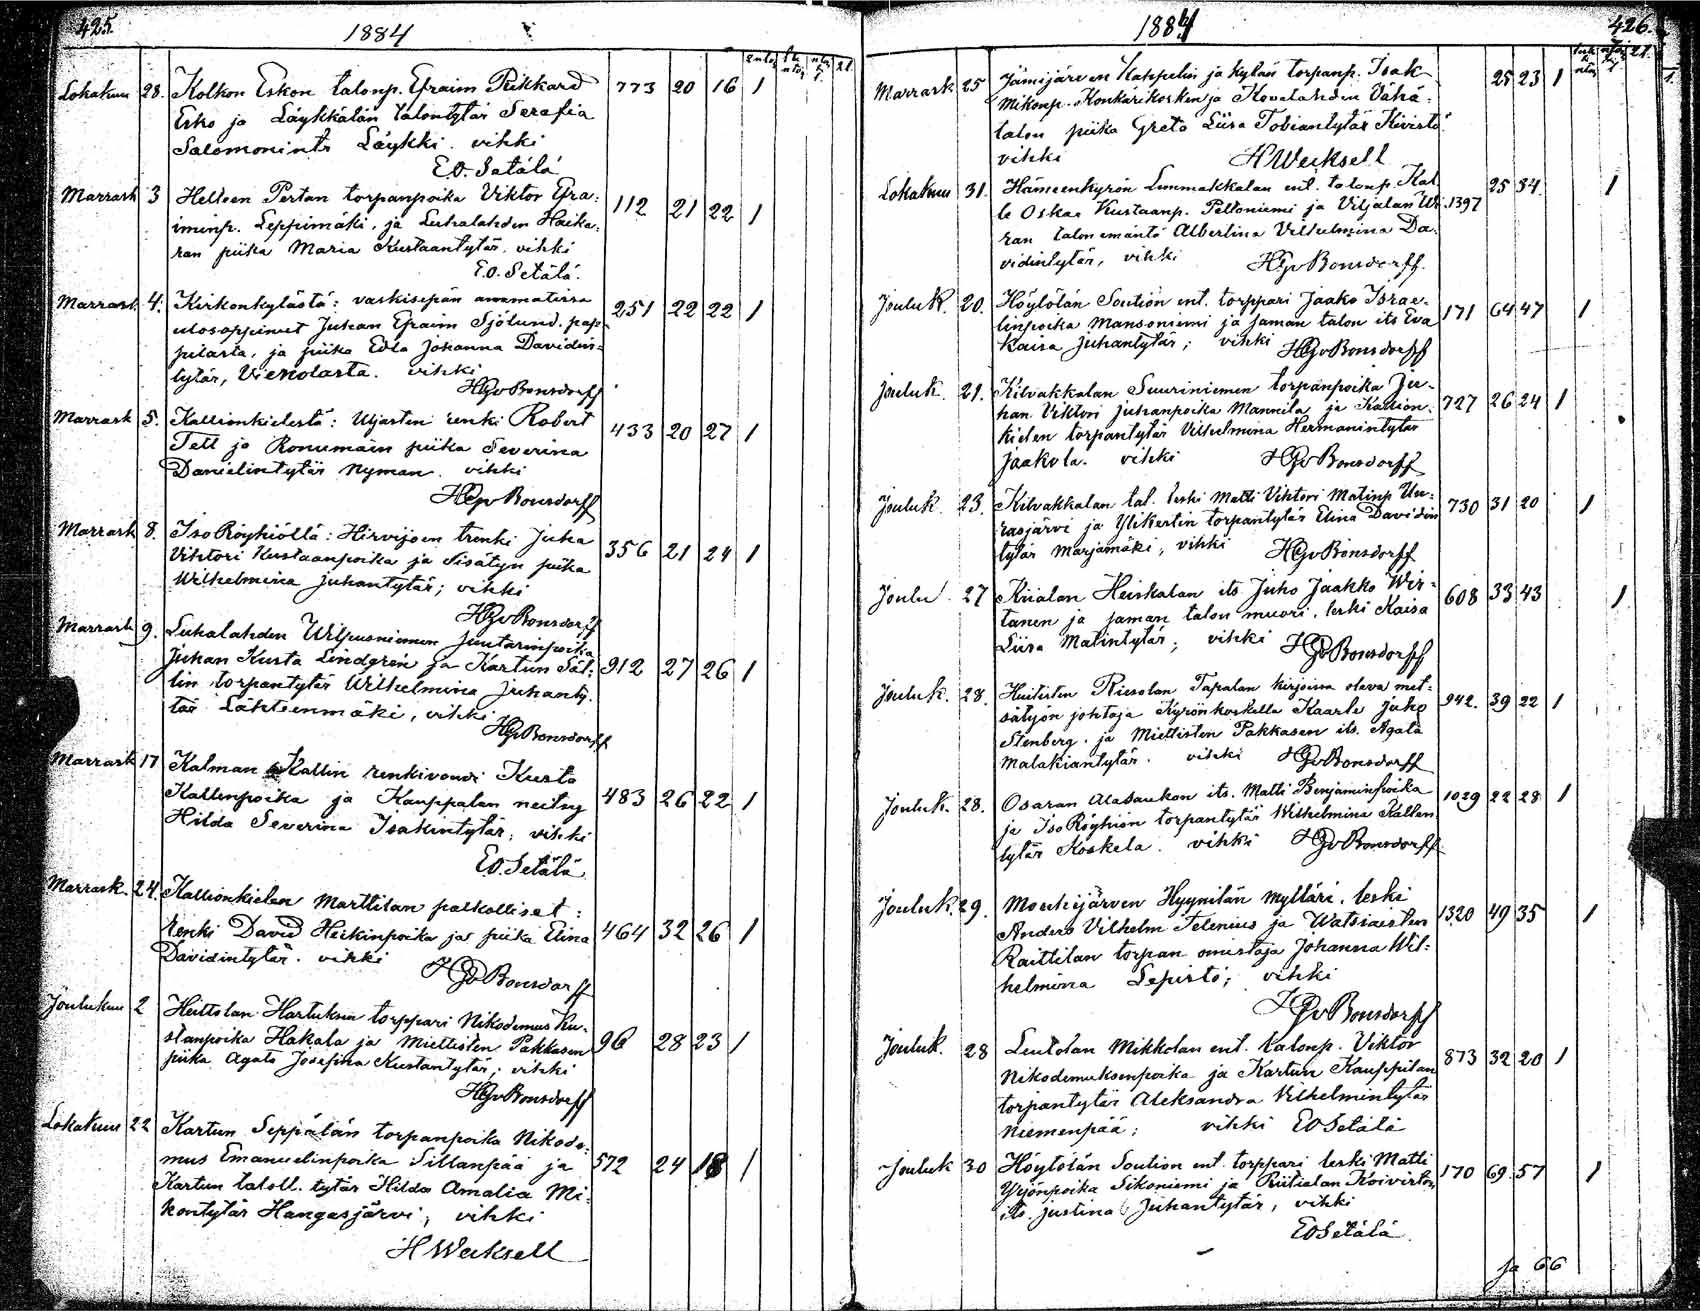 425.
1884
Lokakuu 28. Kolkon Eskon talonp. Efraim Rikkard 773 20 16 1
Esko ja Läykkälän talontytär Serafia
Salomonintr Läykki. vihki
E.O. Setälä
Marrask 3 Heltoen Pertan torpanpoika Viktor Efra- 112 21 22 1
iminp. Leppimäki, ja Luhalahden Hauka-
ran piika Maria Kustaantytär. vihki
E.O. Setälä.
Marrask. 4. Kirkonkylästä: vaskisepän ammatissa 251 22 22 1
ulosoppinut Juhan Efraim Sjölund, pap-
pilasta, ja piika Edla Johanna Davidin-
tytär, Vienolasta. vihki
HGvBonsdorff
Marrask 5. Kallionkielestä: Uljasten renki Robert 433 20 27 1
Tell ja Ronumäin piika Severina
Danielintytär Nyman. vihki
HGvBonsdorff
Marrask 8. Iso Röyhiöllä: Hirvijoen trenki Juha 356 21 24 1
Vihtori Kustaanpoika ja Sisätyn piika
Wilhelmina Juhantytär; vihki
HGvBonsdorff
Marrask 9. Luhalahden Wilpusniemen juutarinpoika
Juhan Kusta Lindgren ja Kartun Säl- 912 27 26 1
lin torpantytär Wilhelmina Juhanty-
tär Lähteenmäki, vihki
HGvBonsdorff
Marrask 17 Kalman Kallin renkivouti Kusta
Kallenpoika ja Kauppalan neitsy 483 26 22 1
Hilda Severina Isakintytär; vihki
E.O. Setälä
Marrask. 24. Kallionkielen Marttilan palkolliset:
renki David Heikinpoika ja piika Elina 464 32 26 1
Davidintytär. vihki
HGvBonsdorff
Joulukuu 2 Heittolan Hartuksen torppari Nikodemus Ku-
staanpoika Hakala ja Miettisten Pakkasen 96 28 23 1
piika Agata Josefina Kustantytär; vihki
HGvBonsdorff
Lokakuu 22 Kartun Seppälän torpanpoika Nikode-
mus Emanuelinpoika Sillanpää ja 572 24 18 1
Kartun taloll. tytär Hilda Amalia Mi-
kontytär Hangasjärvi, vihki
H Weeksell
1884
426.
Marrask 25 Jämijärven Kappelin ja kylän torpanp. Isak 25 23 1
Mikonp. Konkärikosken ja Kovalahden Vähä-
talon piika Greta Liisa Tobiantytär Kivistö
vihki H Weeksell
Lokakuu 31. Hämeenkyrön Lunmakkalan ent. talonp. Kal- 25 34. 1
le Oskar Kustaanp. Peltoniemi ja Viljalan Ui- 1397
ran talon emäntä Albertina Vilhelmina Da-
vidintytär, vihki HGvBonsdorff.
Jouluk. 20. Höytölän Soution ent. torppari Jaako Israe- 171 64 47 1
linpoika Mansoniemi ja saman talon its Eva
Kaisa Juhantytär; vihki HGvBonsdorff
Jouluk. 21. Kilvakkalan Suuriniemen torpanpoika Ju- 727 26 24 1
han Viktori Juhanpoika Mannila ja Kallion-
kielen torpantytär Vilhelmina Hermanintytär
Jaakola. vihki HGvBonsdorff
Jouluk. 23. Kilvakkalan tal. leski Matti Vihtori Matinp Uu- 730 31 20 1
rasjärvi ja Ylikertin torpantytär Elina Davidin
tytär Marjamäki; vihki HGvBonsdorff
Joulu 27 Kiialan Heiskalan its. Juho Jaakko Wir- 608 33 43 1
tanen ja saman talon muori, leski Kaisa
Liisa Matintytär; vihki HGvBonsdorff
Jouluk. 28. Huitisten Riesolan Tapalan kirjoissa oleva met- 942. 39 22 1
sätyön johtaja Kyrönkoskella Kaarle Juho
Stenberg. ja Miettisten Pakkasen its. Agata
Malakiantytär. vihki HGvBonsdorff
Jouluk. 28. Osaran Alasaukon its. Matti Benjaminpoika 1029 22 28 1
ja Iso Röyhiön torpantytär Wilhelmina Kallen
tytär Koskela. vihki HGvBonsdorff
Jouluk. 29. Mouhijärven Hyynilän mylläri, leski
Anders Vilhelm Telenius ja Watsiaisten 1320 49 35 1
Raittilan torpan omistaja Johanna Wil-
helmina Lepistö; vihki
HGvBonsdorff
Jouluk. 28 Leutolan Mikkolan ent. talonp. Viktor 873 32 20 1
Nikodemuksenpoika ja Kartun Kauppilan
torpantytär Aleksandra Vilhelmintytär
Niemenpää; vihki EO Setälä
Jouluk 30 Höytölän Soution ent. torppari leski Matti 170 69 57 1
Yrjönpoika Sikoniemi ja Riitialan Koiviston
its. Justina Juhantytär, vihki
EO Setälä.
ja 66